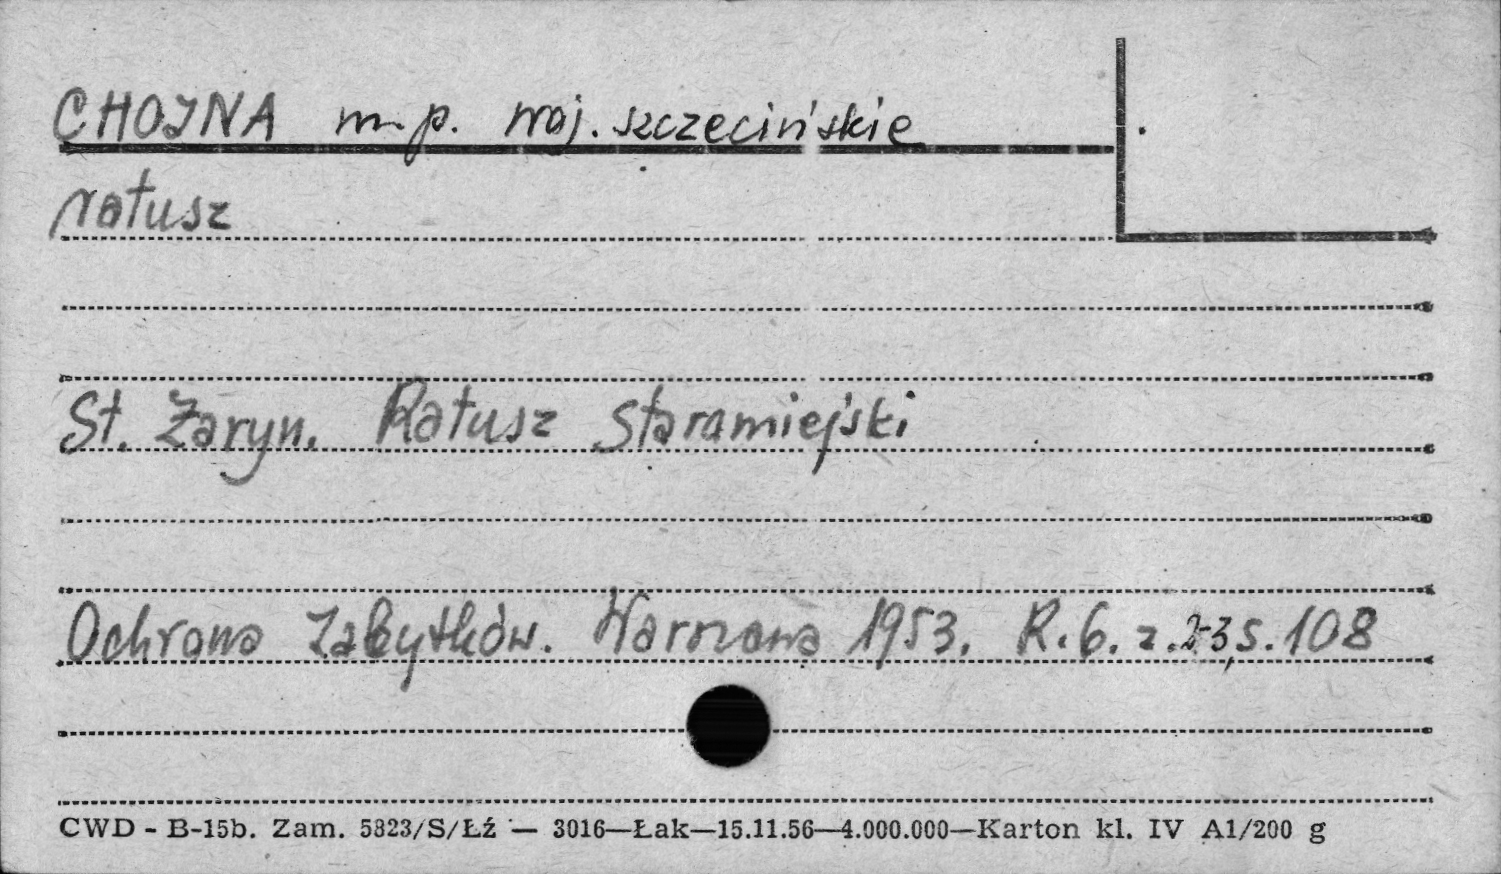 CHOJNA m.p. woj. szczecińskie
ratusz
St. Żaryn. Ratusz staromiejski
Ochrona Zabytków. Warszawa 1953. R.6. z.2-3, s.108
CWD - B-15b. Zam. 5823/S/Łź — 3016—Łak—15.11.56—4.000.000—Karton kl. IV A1/200 g